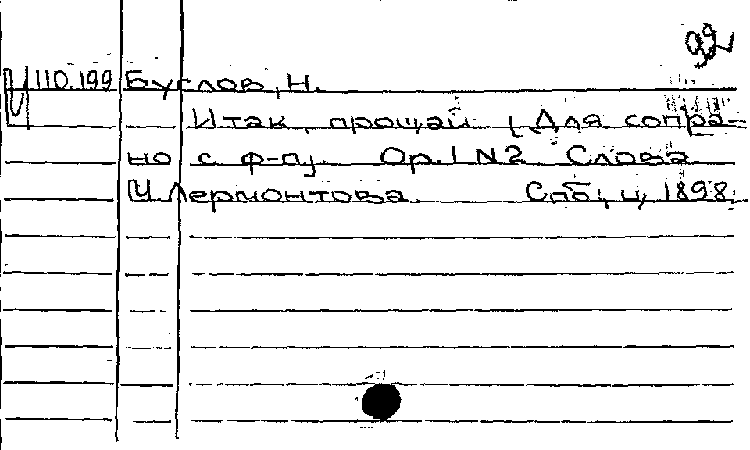 92
Ц 110.199 Буслов, Н.
Итак, прощай. (Для сопра-
но с ф-п). Op. 1 N2 Слова
М Лермонтова. Спб, ц, 1898,